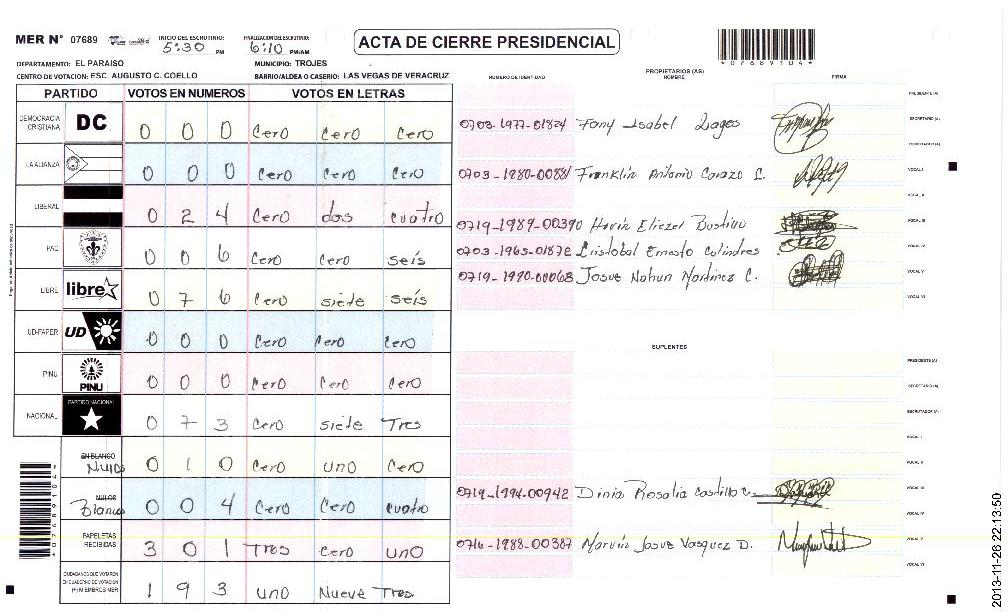 MER N° 07689
INICIO DEL ESCRUTINIO:
5:30 PM
FINALIZACION DEL ESCRUTINIO:
6:10 PM/AM
ACTA DE CIERRE PRESIDENCIAL
*07689104*
DEPARTAMENTO: EL PARAISO
MUNICIPIO: TROJES
CENTRO DE VOTACION: ESC. AUGUSTO C. COELLO
BARRIO/ALDEA O CASERIO: LAS VEGAS DE VERACRUZ
PARTIDO VOTOS EN NUMEROS VOTOS EN LETRAS
DEMOCRACIA CRISTIANA DC 0 0 0 Cero Cero Cero
LA ALIANZA 0 0 0 Cero Cero Cero
LIBERAL 0 2 4 Cero dos cuatro
PAC 0 0 6 Cero Cero seís
LIBRE libre 0 7 6 Cero siete seís
UD-FAPER UD 0 0 0 Cero Cero Cero
PINU PINU 0 0 0 Cero Cero Cero
NACIONAL PARTIDO NACIONAL 0 7 3 Cero siete Tres
EN BLANCO Nulos 0 1 0 Cero uno Cero
NULOS Blanco 0 0 4 Cero Cero cuatro
PAPELETAS RECIBIDAS 3 0 1 Tres Cero uno
CIUDADANOS QUE VOTARON EN CUADERNO DE VOTACION (+) MIEMBROS MER 1 9 3 uno Nueve Tres
*07689104*
NUMERO DE IDENTIDAD
PROPIETARIOS (AS)
NOMBRE
FIRMA
PRESIDENTE (A)
0703-1977-01824 Fany Isabel Lagos
SECRETARIO (A)
ESCRUTADOR (A)
0703-1980-00881 Franklin Antonio
VOCAL I
VOCAL II
0719-1989-00390
VOCAL III
0703-1965-01872 Cristobal Ernesto Colindres
VOCAL IV
0719-1990-00068 Josue Nahun Martinez C.
VOCAL V
VOCAL VI
SUPLENTES
PRESIDENTE (A)
SECRETARIO (A)
ESCRUTADOR (A)
VOCAL I
VOCAL II
0719-1994-00942 Dinia Rosalia Castillo C.
VOCAL III
VOCAL IV
0716-1988-00387 Marvin Josue Vasquez D.
VOCAL V
VOCAL VI
2013-11-26 22:13:50